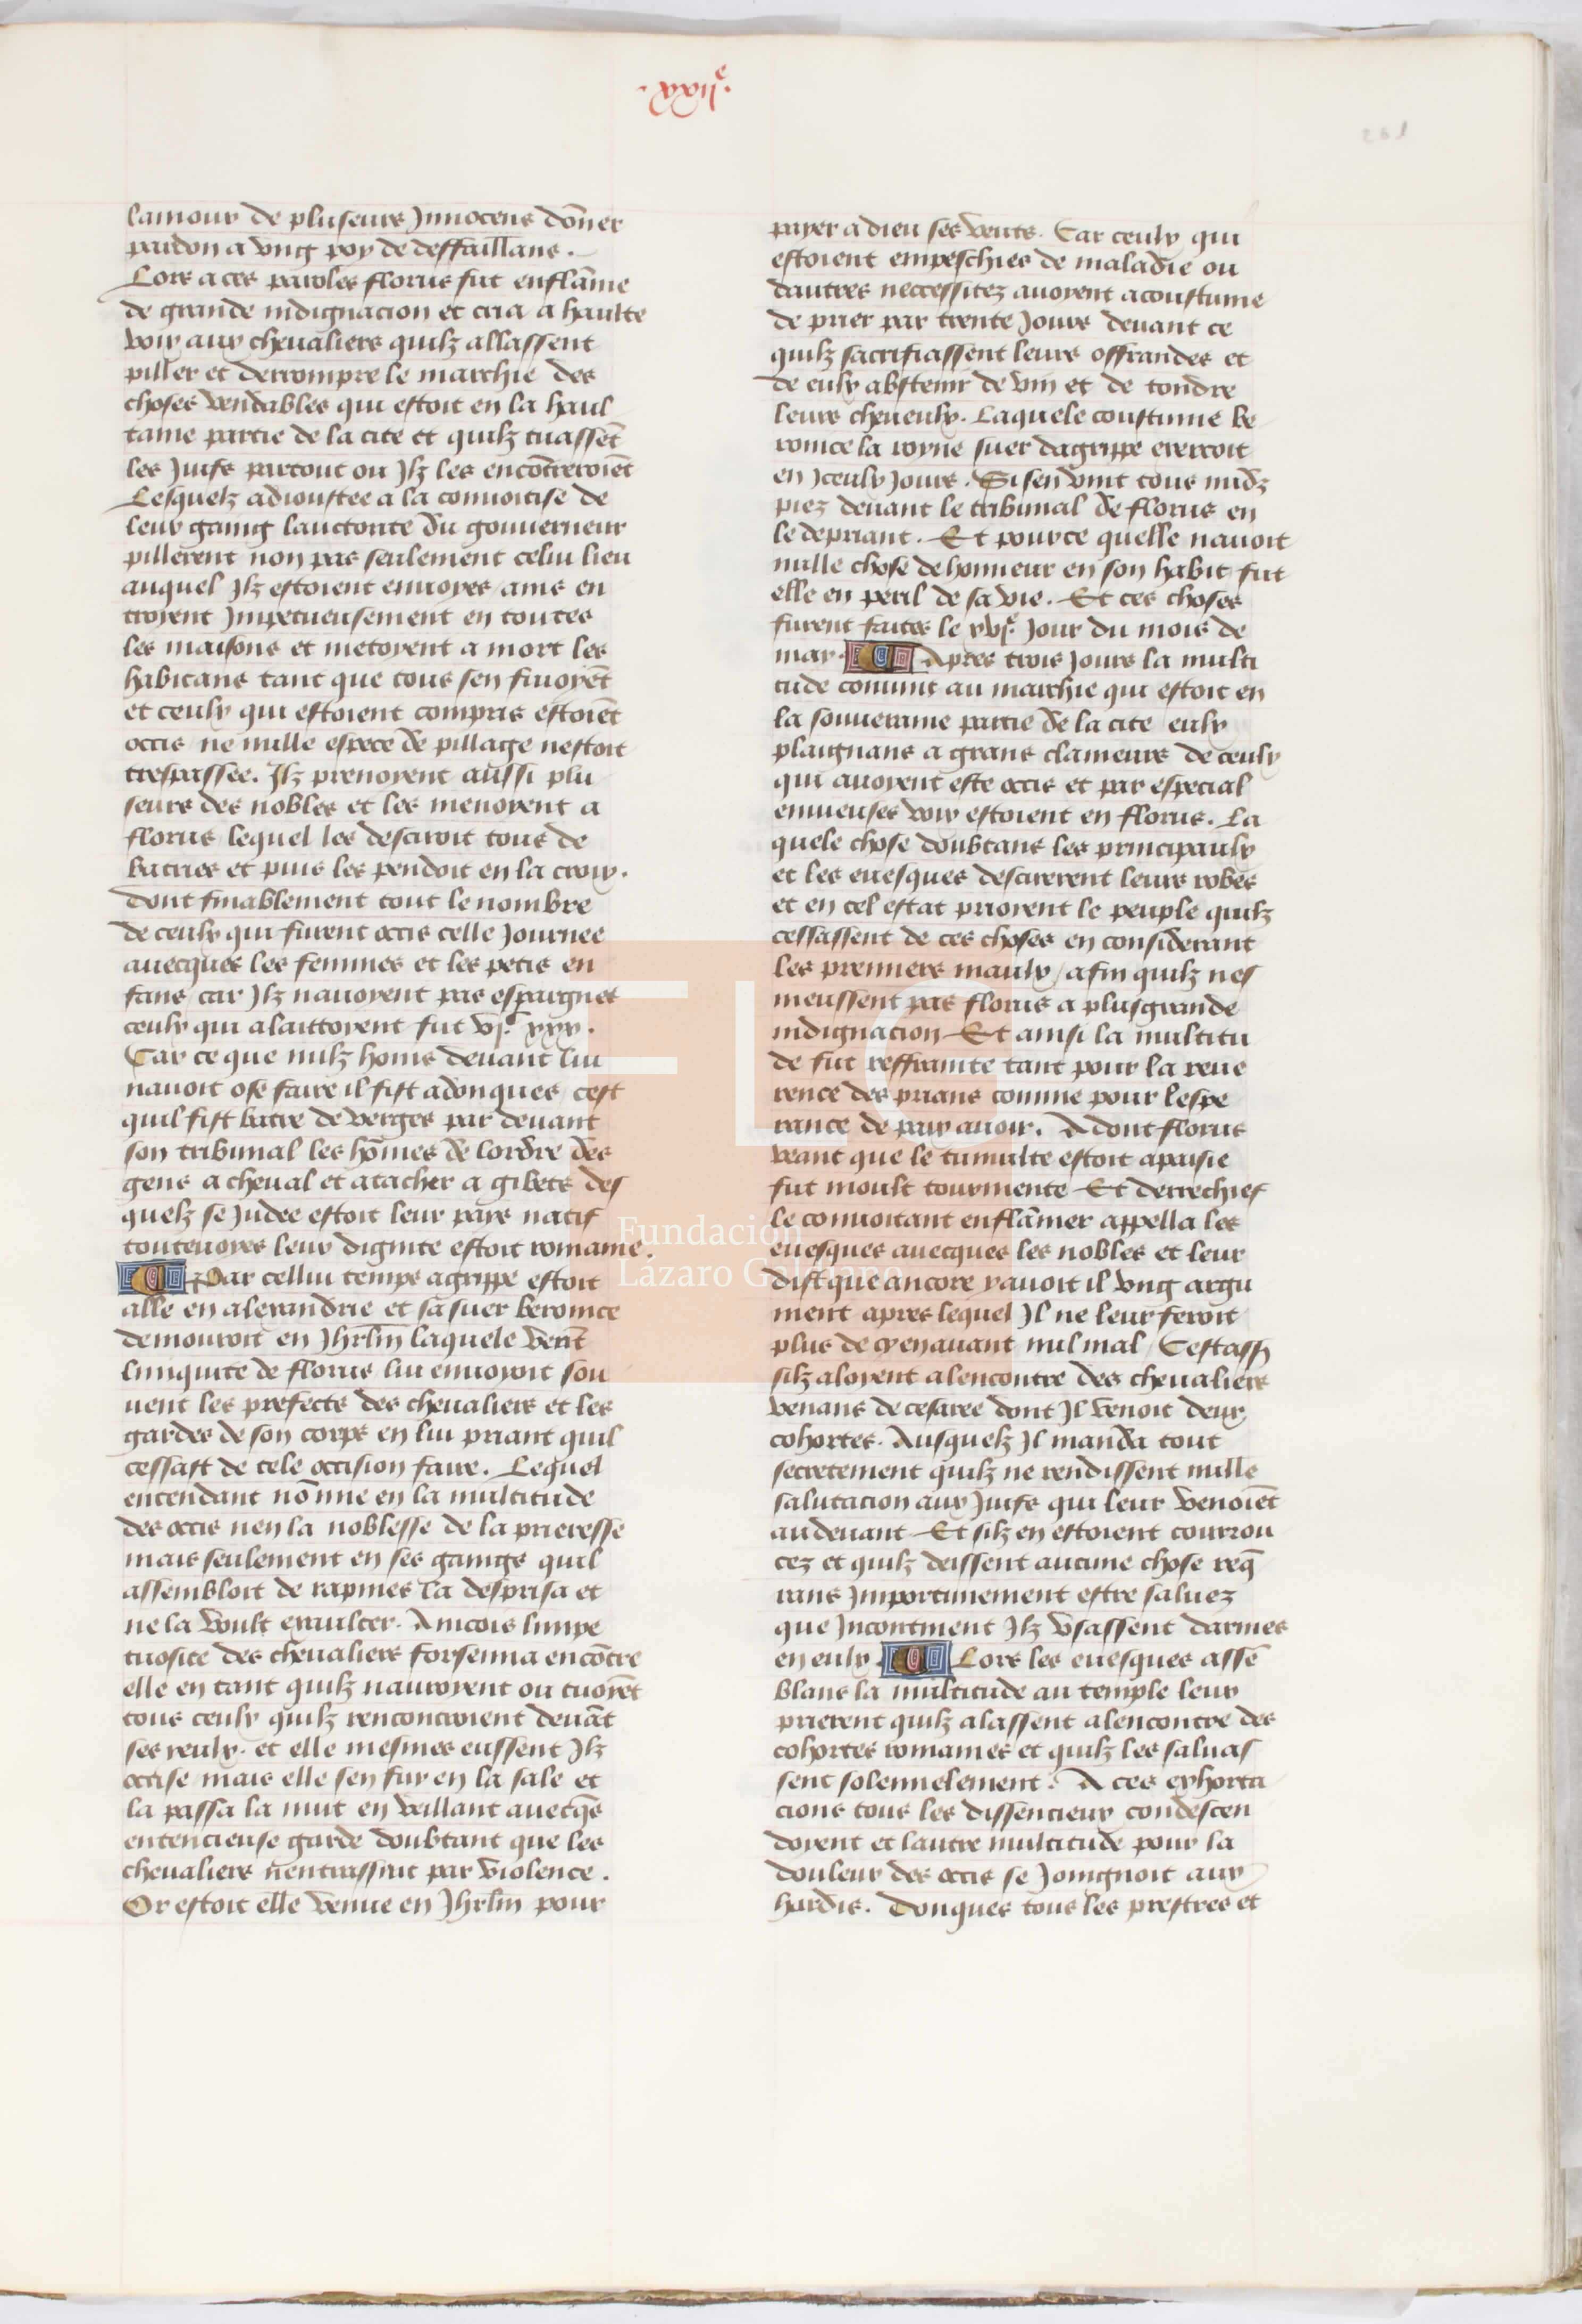 .xxiiᵉ.
261
lamour de pluseurs Jnnocens dōner
pardon a vng poy de deffaillans.
Lors a ces paroles florus fut enflāme
de grande indignacion et cria a haulte
voix aux cheualiers quilz allassent
piller et derrompre le marchie des
choses vendables qui estoit en la haul
taine partie de la cite et quilz tuassēt
les Juifs partout ou Jlz les encōtreroiēt
Lesquelz adioustee a la conuoitise de
leur gaing lauctorite du gouuerneur
pillerent non pas seulement celui lieu
auquel Jlz estoient enuoyes ains en
troyent Jmpetueusement en toutes
les maisons et metoyent a mort les
habitans tant que tous sen fuioyēt
et ceulx qui estoient compris estoiēt
occis ne nulle espece de pillage nestoit
trespassee. Jlz prenoyent aussi plu
seurs des nobles et les menoyent a
florus lequel les desciroit tous de
batures et puis les pendoit en la croix.
dont finablement tout le nombre
de ceulx qui furent occis celle Journee
auecques les femmes et les petis en
fans car Jlz nauoyent pas espargnet
ceulx qui alaittoyent fut vjᶜ xxx.
Car ce que nulz homs deuant lui
nauoit ose faire il fist adonques cest
quil fist batre de verges par deuant
son tribunal les hōmes de lordre des
gens a cheual et atachier a gibets des
quelz se Judee estoit leur pays natif
toutenoyes leur dignite estoit romaine.
Par cellui temps agrippe estoit
alle en alexandrie et sa suer beronice
demouroit en Jhrl̄m laquele veāt
liniquite de florus lui enuoyoit sou
uent les prefects des cheualiers et les
gardes de son corps en lui priant quil
cessast de tele occision faire. Lequel
entendant nō mie en la multitude
des occis nen la noblesse de la prieresse
mais seulement en ses gaings quil
assembloit de rapines la desprisa et
ne la voult exaulcer. Aincois limpe
tuosite des cheualiers forsenna encōtre
elle en tant quilz nauroyent ou tuoyēt
tous ceulx quilz rencontroient deuāt
ses yeulx. et elle mesmes eussent Jlz
occise mais elle sen fuy en la sale et
la passa la nuit en veillant auecq̄s
ententieuse garde doubtant que les
cheualiers nentrassent par violence.
Or estoit elle venue en Jhrl̄m pour
payer a dieu ses veuts. Car ceulx qui
estoient empeschies de maladie ou
dautres neccessitez auoyent acoustume
de prier par trente Jours deuant ce
quilz sacrifiassent leurs offrandes et
de eulx abstenir de vin et de tondre
leurs cheueulx. Laquele coustume be
ronice la royne suer dagrippe exercoit
en Jceulx Jours. Si sen vint tous nudz
piez deuant le tribunal de florus en
le depriant. Et pource quelle nauoit
nulle chose dehonneur en son habit fut
elle en peril de sa vie. Et ces choses
furent faites le xvjᵉ. Jour du mois de
may. Apres trois Jours la multi
tude conuint au marchie qui estoit en
la souueraine partie de la cite eulx
plaignans a grans clameurs de ceulx
qui auoyent este occis et par especial
enuieuses voix estoient en florus. La
quele chose doubtans les principaulx
et les euesques descirerent leurs robes
et en cel estat prioyent le peuple quilz
cessassent de ces choses en considerant
les premiers maulx / afin quilz nes
meussent pas florus a plusgrande
indignacion Et ainsi la multitu
de fut reffrainte tant pour la reue
rence des prians comme pour lespe
rance de paix auoir. Adont florus
veant que le tumulte estoit apaisie
fut moult tourmente Et derrechief
le conuoitant enflāmer appella les
euesques auecques les nobles et leur
dist que ancore yauoit il vng argu
ment apres lequel Jl ne leur feroit
plus de cy enauant nul mal / Cestass
silz aloyent alencontre des cheualiers
venans de cesaree dont Jl venoit deux
cohortes. Ausquelz Jl manda tout
secretement quilz ne rendissent nulle
salutacion aux Juifs qui leur venoiēt
audeuant Et silz en estoient courrou
cez et quilz deissent aucune chose req̄
rans Jmportunement estre saluez
que Jncontinent Jlz vsassent darmes
en eulx. Lors les euesques assē
blans la multitude au temple leur
prierent quilz alassent alencontre des
cohortes romaines et quilz les saluas
sent solennelement. A ces exhorta
cions tous les dissencieux condescen
doyent et lautre multitude pour la
douleur des occis se Joingnoit aux
hardis. Donques tous les prestres et
FLG
Fundación
Lázaro Galdiano